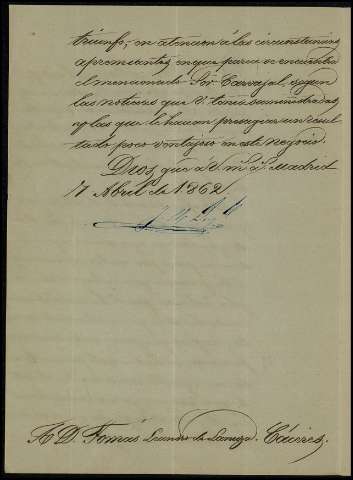 triunfo; en atencion á las circunstancias
apremiantes en que parece se encuentra
el mencionado Sor Carvajal, segun
las noticias que V. tiene suministradas,
y las que le hacen presagiar un resul
tado poco ventajoso en este negocio.
Dios, que á V. m.s a.s Madrid
7 Abril de 1862.
A D. Tomás Leandro de Lanuza. Cáceres.